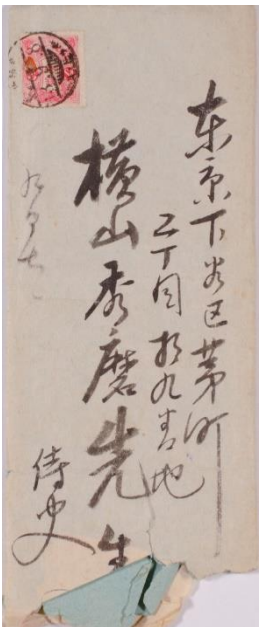 東京下谷区茅町
二丁目拾九番地
横山秀麿先生
侍史